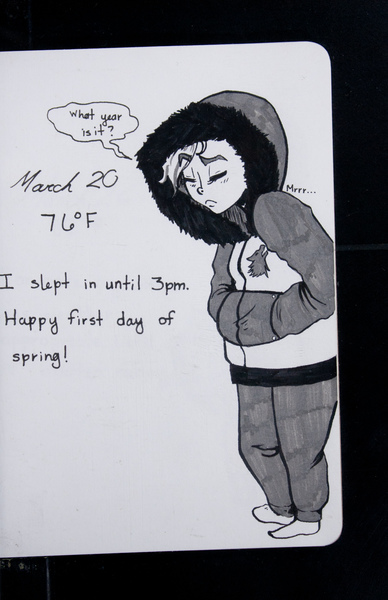 What year
is it?
March 20
76°F
Mrrr...
I slept in until 3pm.
Happy first day of
spring!